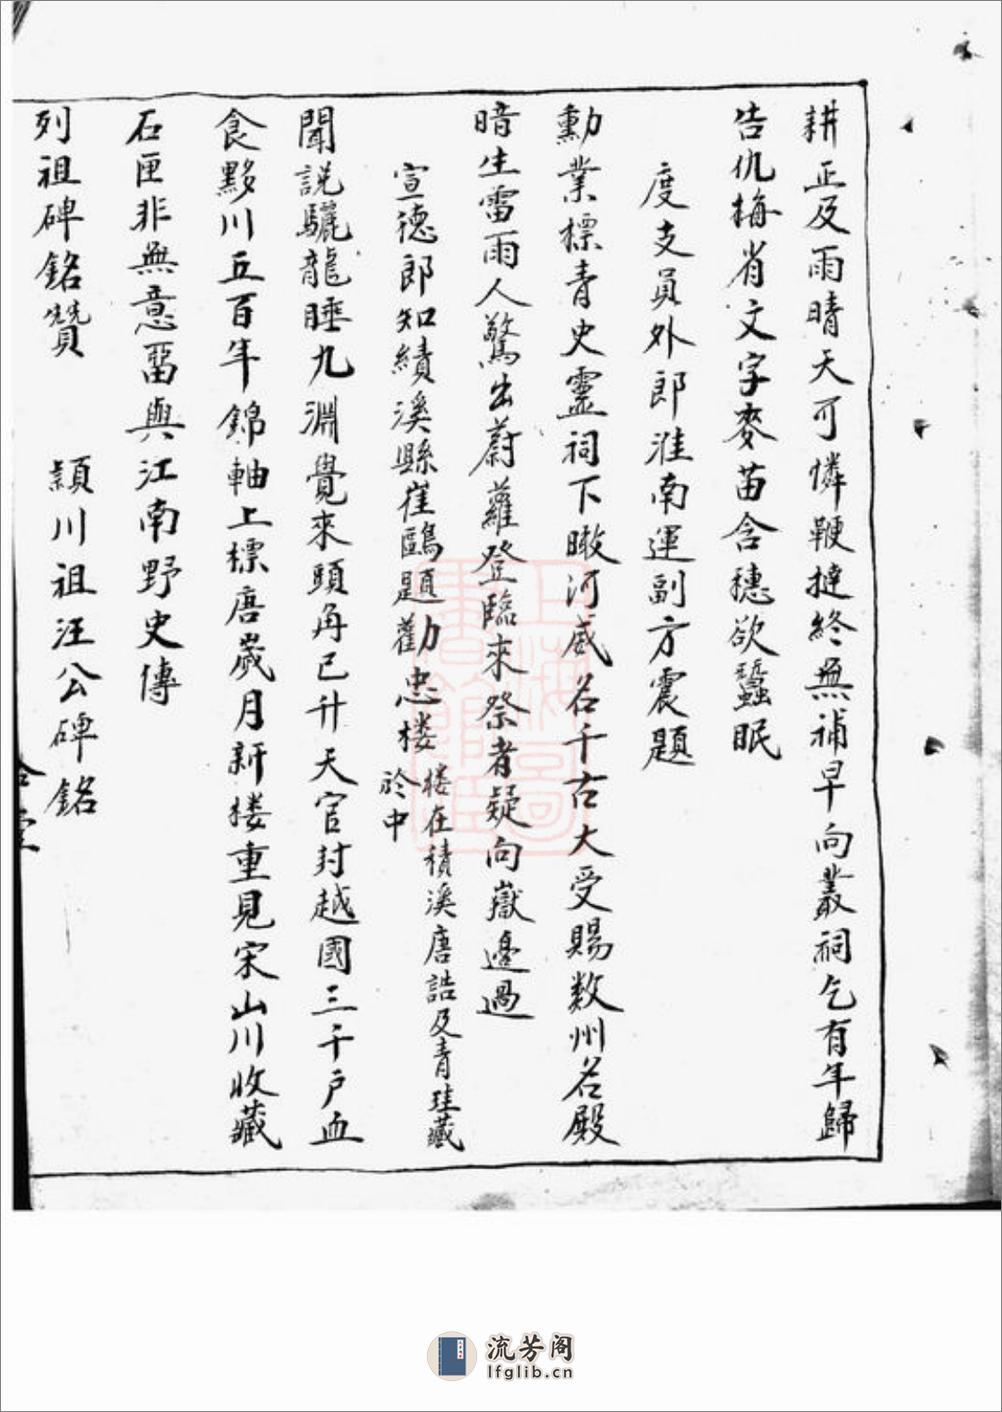 耕正及雨晴天可憐鞭撻終無補早向叢祠乞有年歸
告仇梅省文字麥苗含穗欲蠶眠
度支員外郎淮南運副方震題
勳業標青史靈祠下瞰河威名千古大受賜数州名殿
暗生雷雨人驚出蔚蘿登臨來祭者疑向嶽邊過
宣德郎知績溪縣崔鷗題勸忠楼楼在積溪唐誥及青珪藏
於中
聞說驪龍睡九淵覺來頭角已升天官封越國三千戶血
食黟川五百年錦軸上標唐嵗月新楼重見宋山川收藏
石匣非無意畱與江南野史傳
列祖碑銘贊 頴川祖汪公碑銘
上海圖書館藏
流芳阁
lfglib.cn